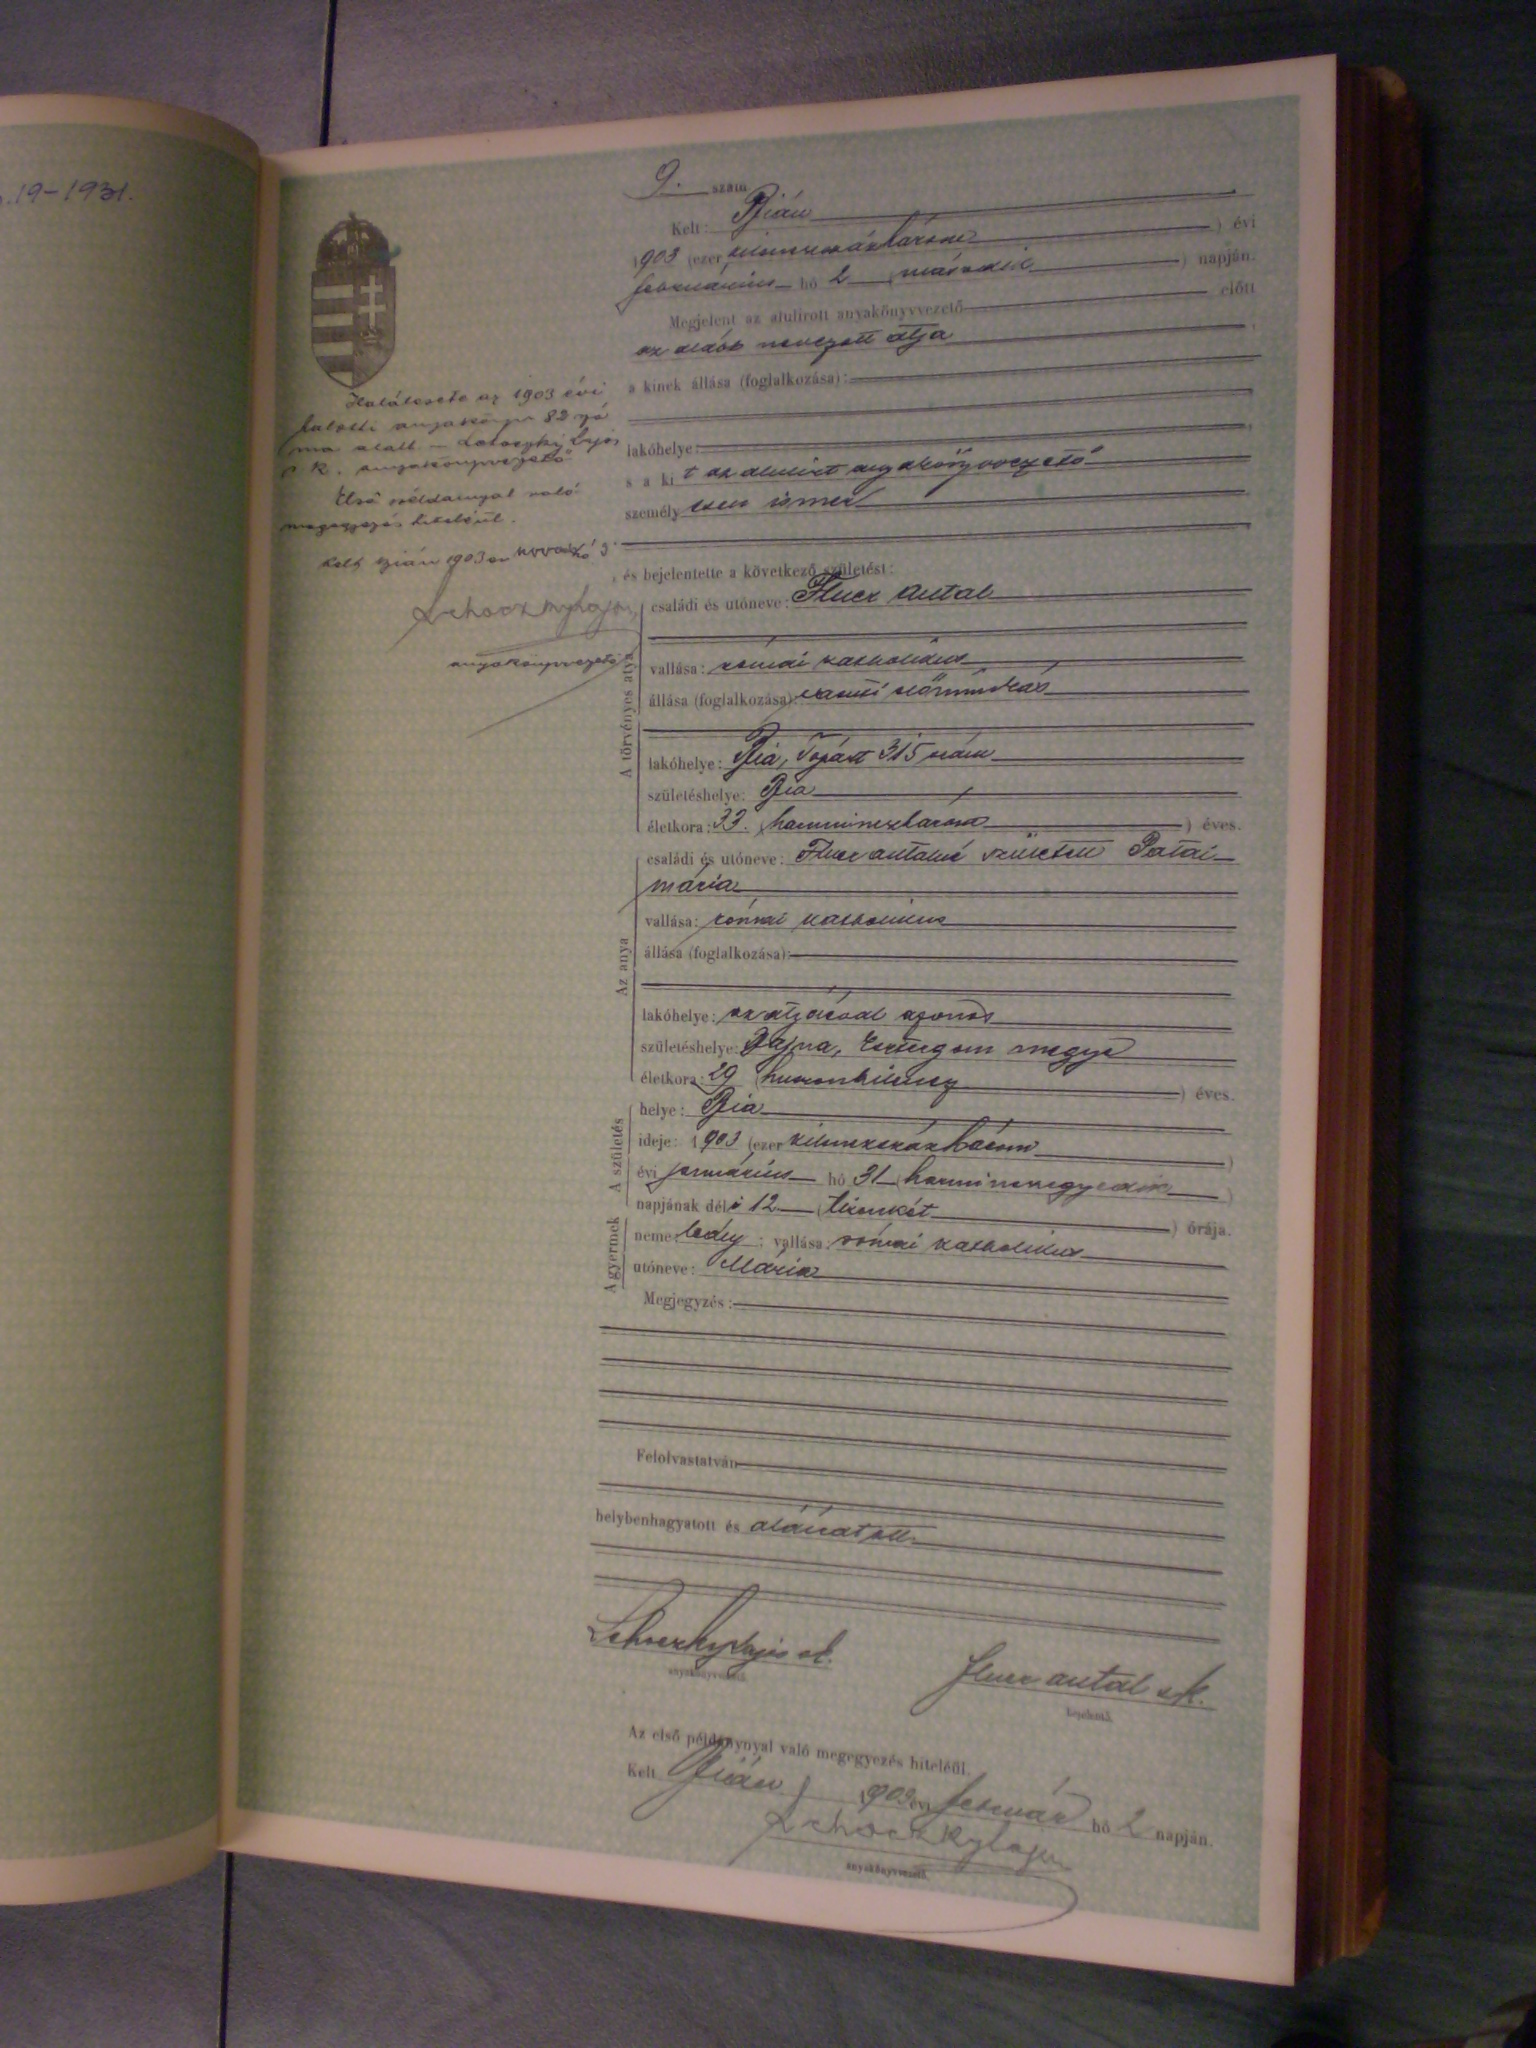 19-1931.
9. szám
Kelt: Bián
1903 (ezer kilenczszázhárom) évi
február hó 2 (második) napján.
Megjelent az alulirott anyakönyvvezető előtt
az alább nevezett atja
a kinek állása (foglalkozása):
lakóhelye:
s a ki t az alulirt anyakönyvvezető
személy esen ismer
és bejelentette a következő születést:
Halálesete az 1903 évi
halotti anyakönyv 82 szá
ma alatt. — Lehoczky Lajos
s. k. anyakönyvvezető
Első példánnyal való
megegyezés hiteléül.
Kelt Bián 1903
Lehoczky Lajos
anyakönyvvezető
A törvényes atya
családi és utóneve: Flucz Antal
vallása: római katholikus
állása (foglalkozása):
lakóhelye: Bia, 315 szám
születéshelye: Bia
életkora: 33. (harminczhárom) éves.
Az anya
családi és utóneve: Flucz Antalné született Patai
Mária
vallása: római katholikus
állása (foglalkozása):
lakóhelye: az atyáéval azonos
születéshelye: Bajna, Esztergom megye
életkora: 29 (huszonkilencz) éves.
A születés
helye: Bia
ideje: 1903 (ezer kilenczszázhárom)
évi január hó 31 (harminczegyedik)
napjának dél i 12 (tizenkét) órája.
A gyermek
neme: leány; vallása: római katholikus
utóneve: Mária
Megjegyzés:
Felolvastatván
helybenhagyatott és aláiratott.
Lehoczky Lajos sk. Flucz Antal sk.
anyakönyvvezető. bejelentő.
Az első példánynyal való megegyezés hiteléül.
Kelt Bián, 1903 évi február hó 2 napján.
Lehoczky Lajos
anyakönyvvezető.